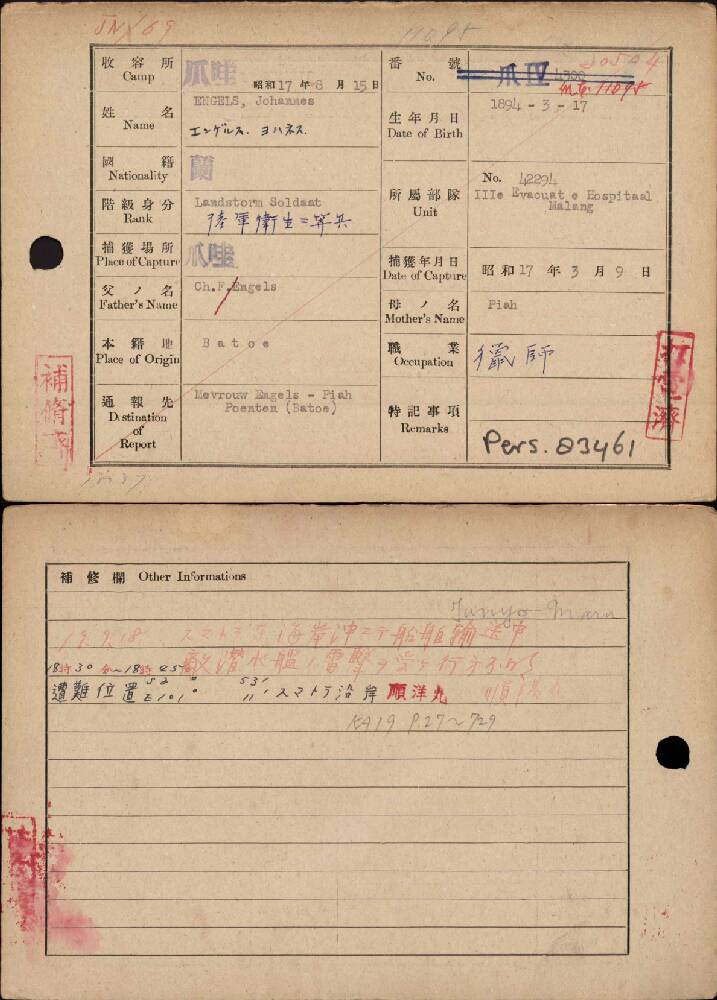 11095
收容所 Camp 爪哇 昭和17年8月15日
番號 No. 爪IV 4300
20504
11095
姓名 Name ENGELS, Johannes
エンゲルス. ヨハネス.
生年月日 Date of Birth 1894 - 3 - 17
國籍 Nationality 蘭
階級身分 Rank Landstorm Soldaat
陸軍衛生二等兵
所屬部隊 Unit No. 42294
IIIe Evacuat e Hospitaal
Malang
捕獲場所 Place of Capture 爪哇
捕獲年月日 Date of Capture 昭和17年3月9日
父ノ名 Father's Name Ch.F.Engels
母ノ名 Mother's Name Piah
本籍地 Place of Origin Batoe
職業 Occupation 猟師
通報先 Destination of Report Mevrouw Engels - Piah
Poenten (Batoe)
特記事項 Remarks
Pers. 83461
補脩済
打電濟
補修欄 Other Informations
Junyo Maru
19.9.18 スマトラ 海岸沖ニテ船舶輸送中
18時30分〜18時45分 敵潜水艦ノ雷撃
遭難位置 スマトラ沿岸 順洋丸
KA19 P.27〜729